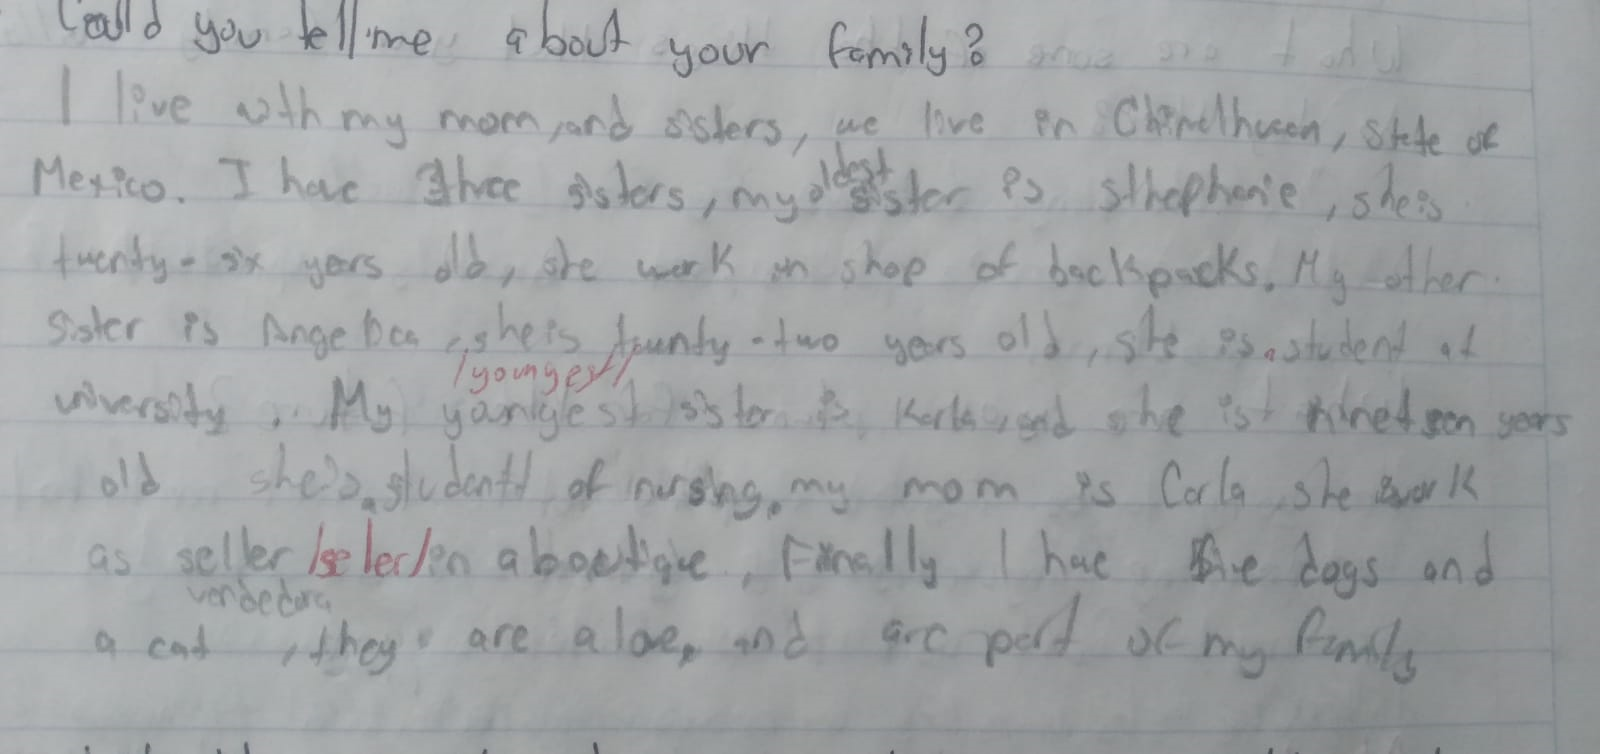 Could you tell me about your family?
I live with my mom, and sisters, we live in Chimalhuacan, State of
Mexico. I have three sisters, my oldest sister is sthephanie, she is
twenty-six years old, she work in shop of backpacks. My other
sister is Angelica, she is twunty-two years old, she is a student at
/youngest/
university. My younglest sister is Karla, and she is nineteen years
old she's a student of nursing, my mom is Carla she work
as seller /seler/ in a boutique, Finally I have five dogs and
vendedora
a cat, they are a love, and are part of my family